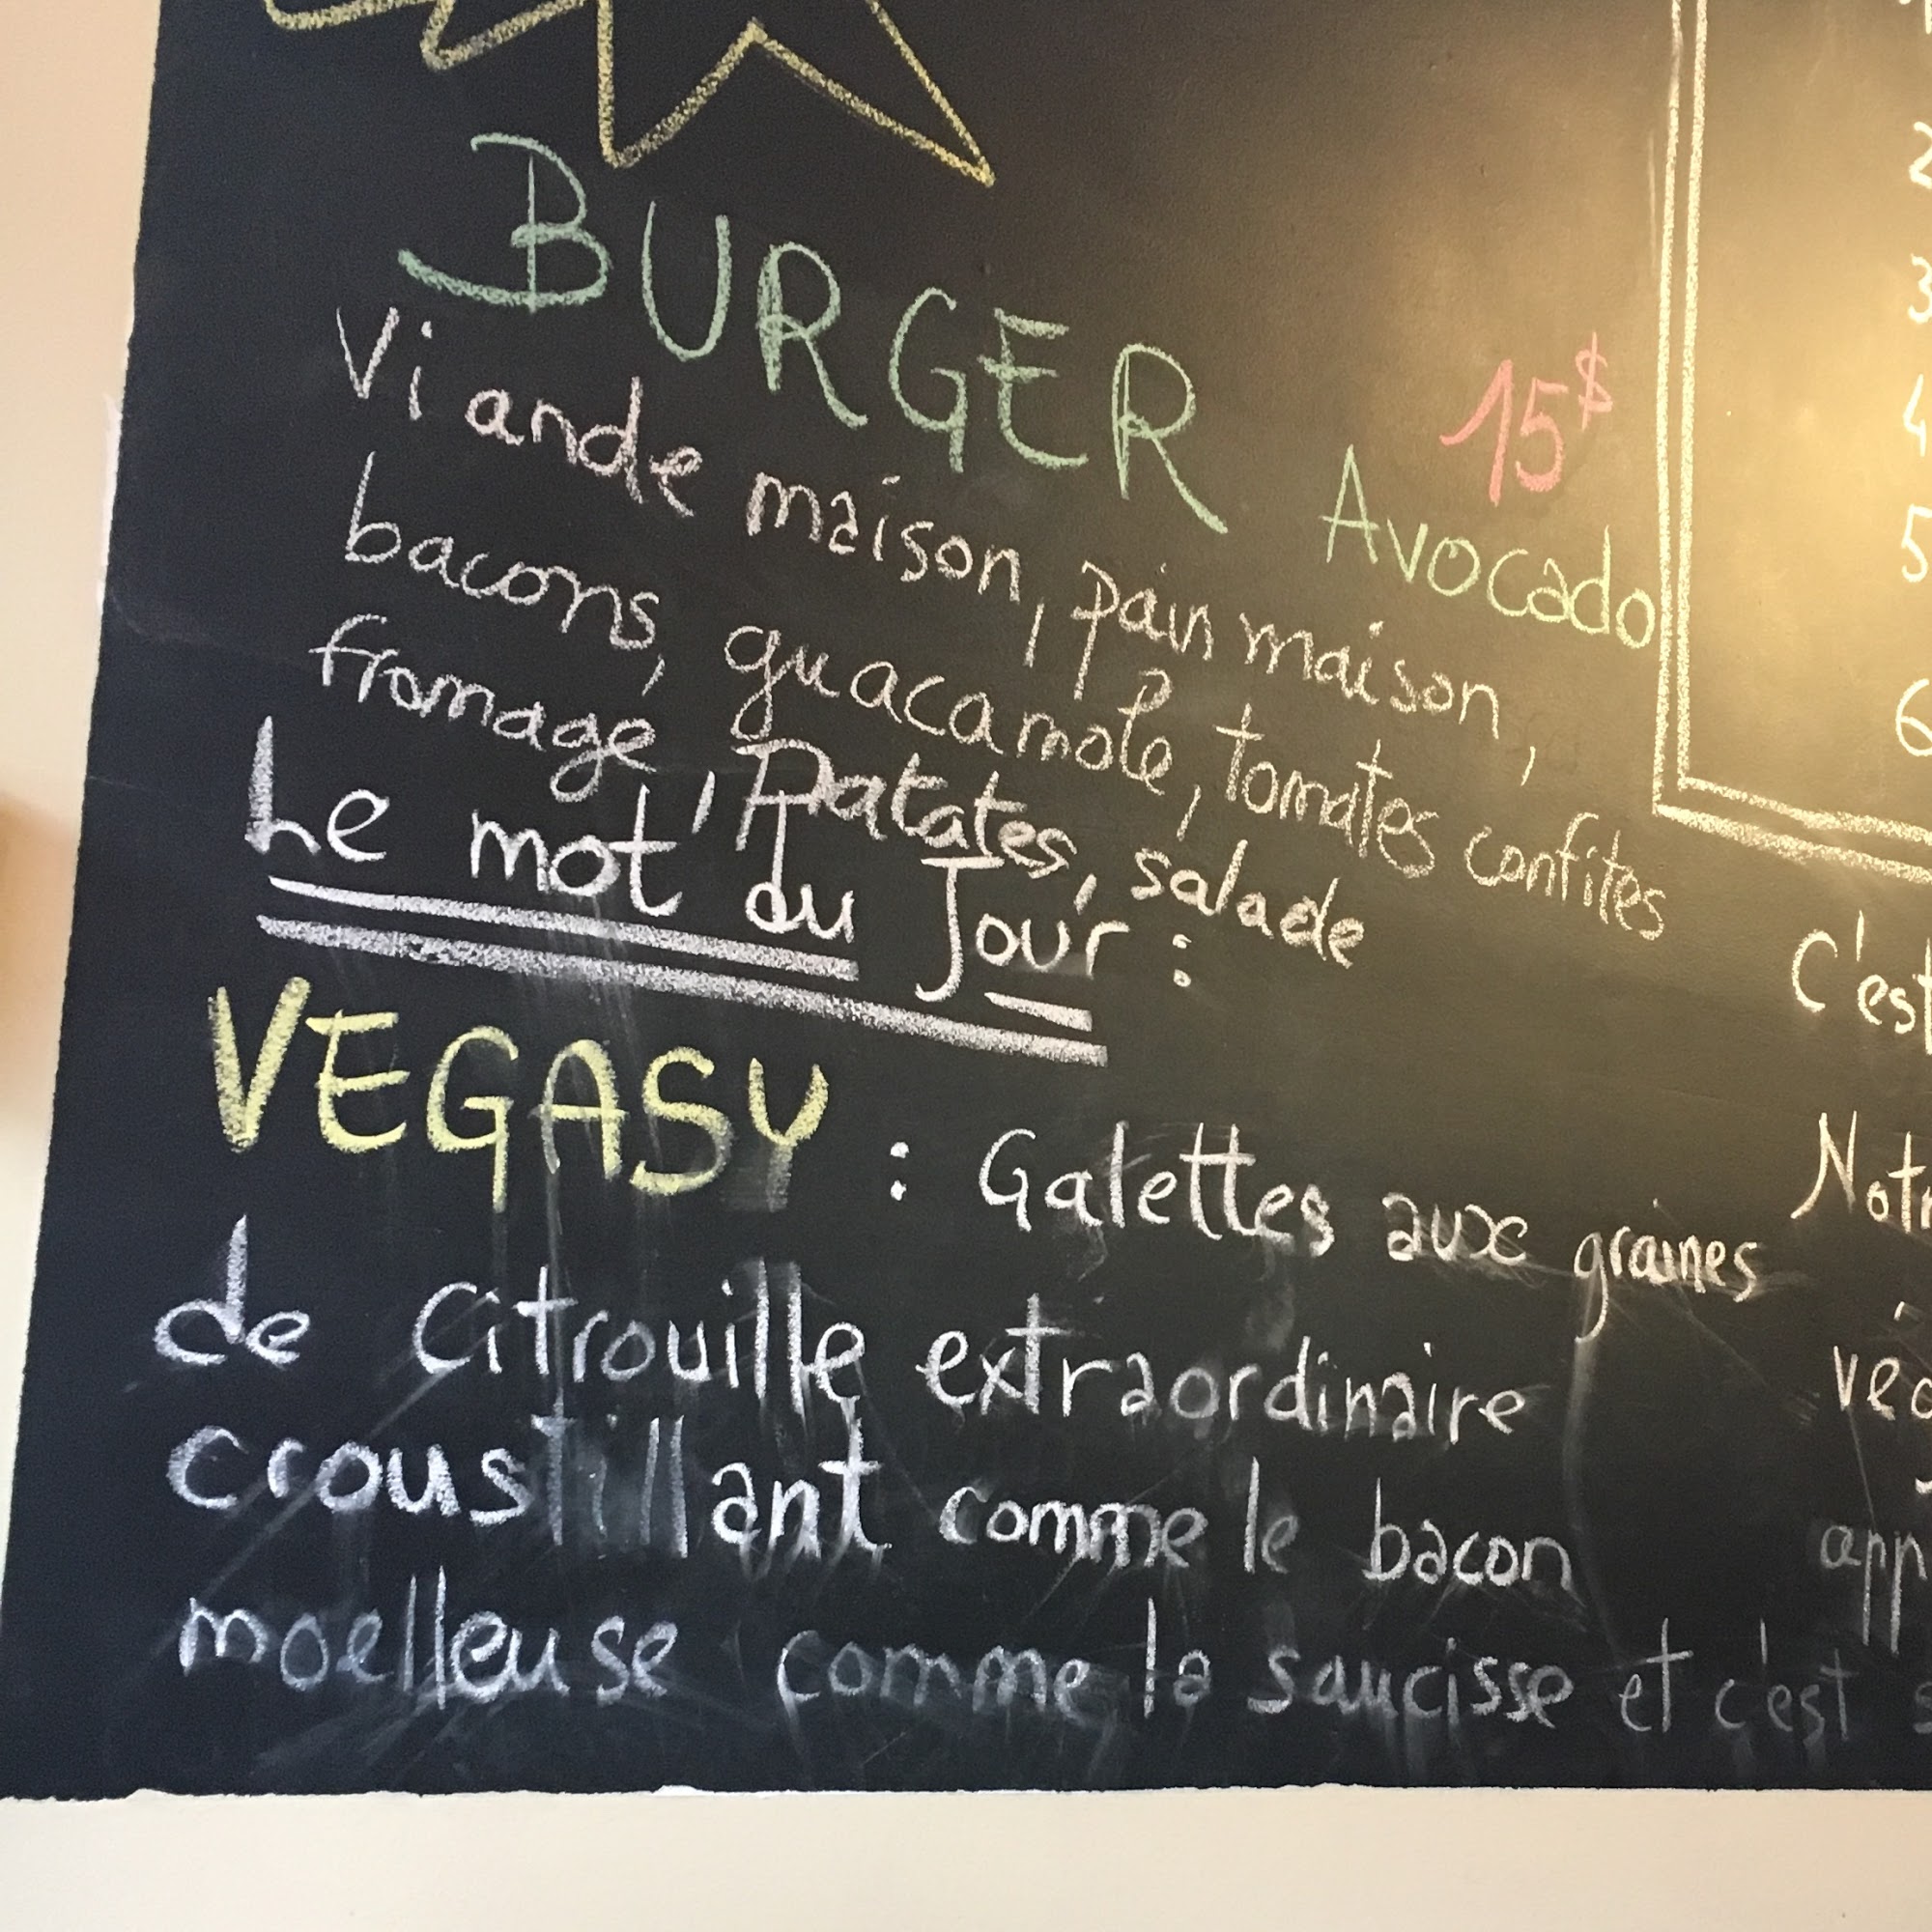 BURGER
15$
Avocado
Viande maison, pain maison,
bacons, guacamole, tomates confites
fromage, Patates, salade
Le mot du Jour :
VEGASY : Galettes aux graines
de citrouille extraordinaire
croustillant comme le bacon
moelleuse comme la saucisse et c'est
2
3
4
5
6
C'est
Notr
vég
app